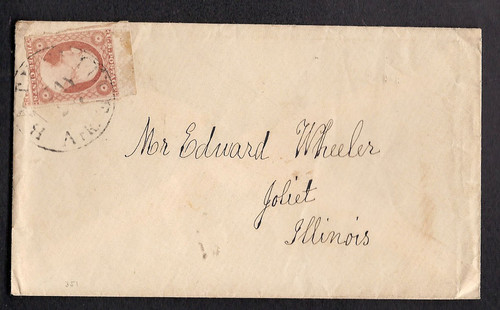 Mr Edward Wheeler
Joliet
Illinois
ARK.
251